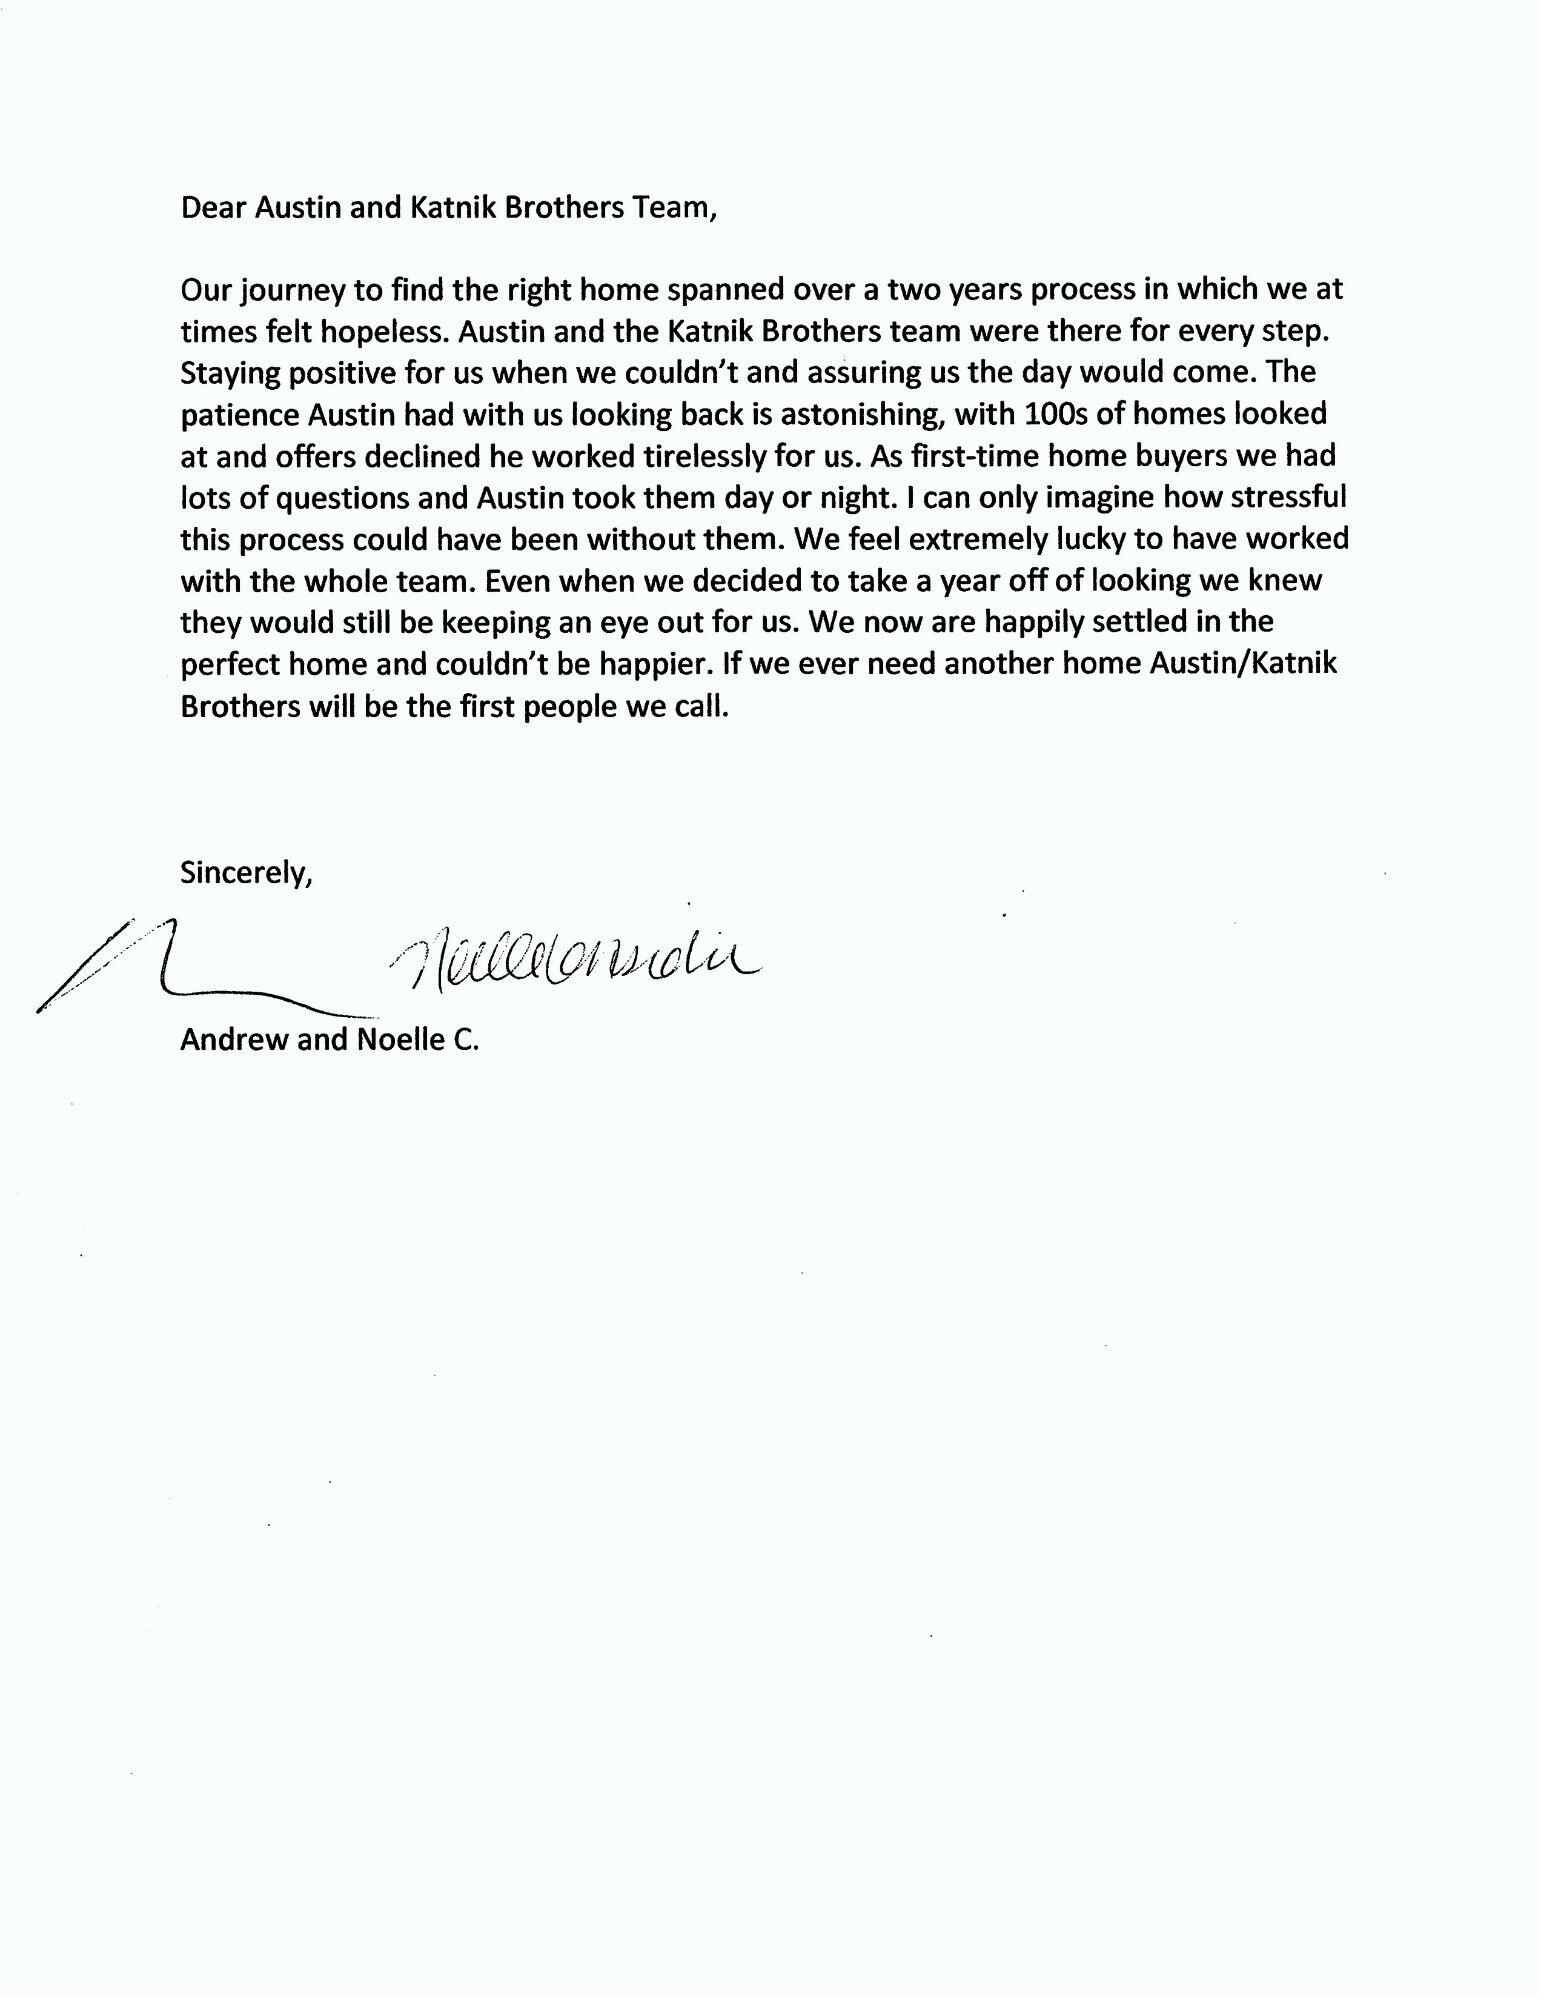 Dear Austin and Katnik Brothers Team,
Our journey to find the right home spanned over a two years process in which we at
times felt hopeless. Austin and the Katnik Brothers team were there for every step.
Staying positive for us when we couldn't and assuring us the day would come. The
patience Austin had with us looking back is astonishing, with 100s of homes looked
at and offers declined he worked tirelessly for us. As first-time home buyers we had
lots of questions and Austin took them day or night. I can only imagine how stressful
this process could have been without them. We feel extremely lucky to have worked
with the whole team. Even when we decided to take a year off of looking we knew
they would still be keeping an eye out for us. We now are happily settled in the
perfect home and couldn't be happier. If we ever need another home Austin/Katnik
Brothers will be the first people we call.
Sincerely,
Noelle
Andrew and Noelle C.